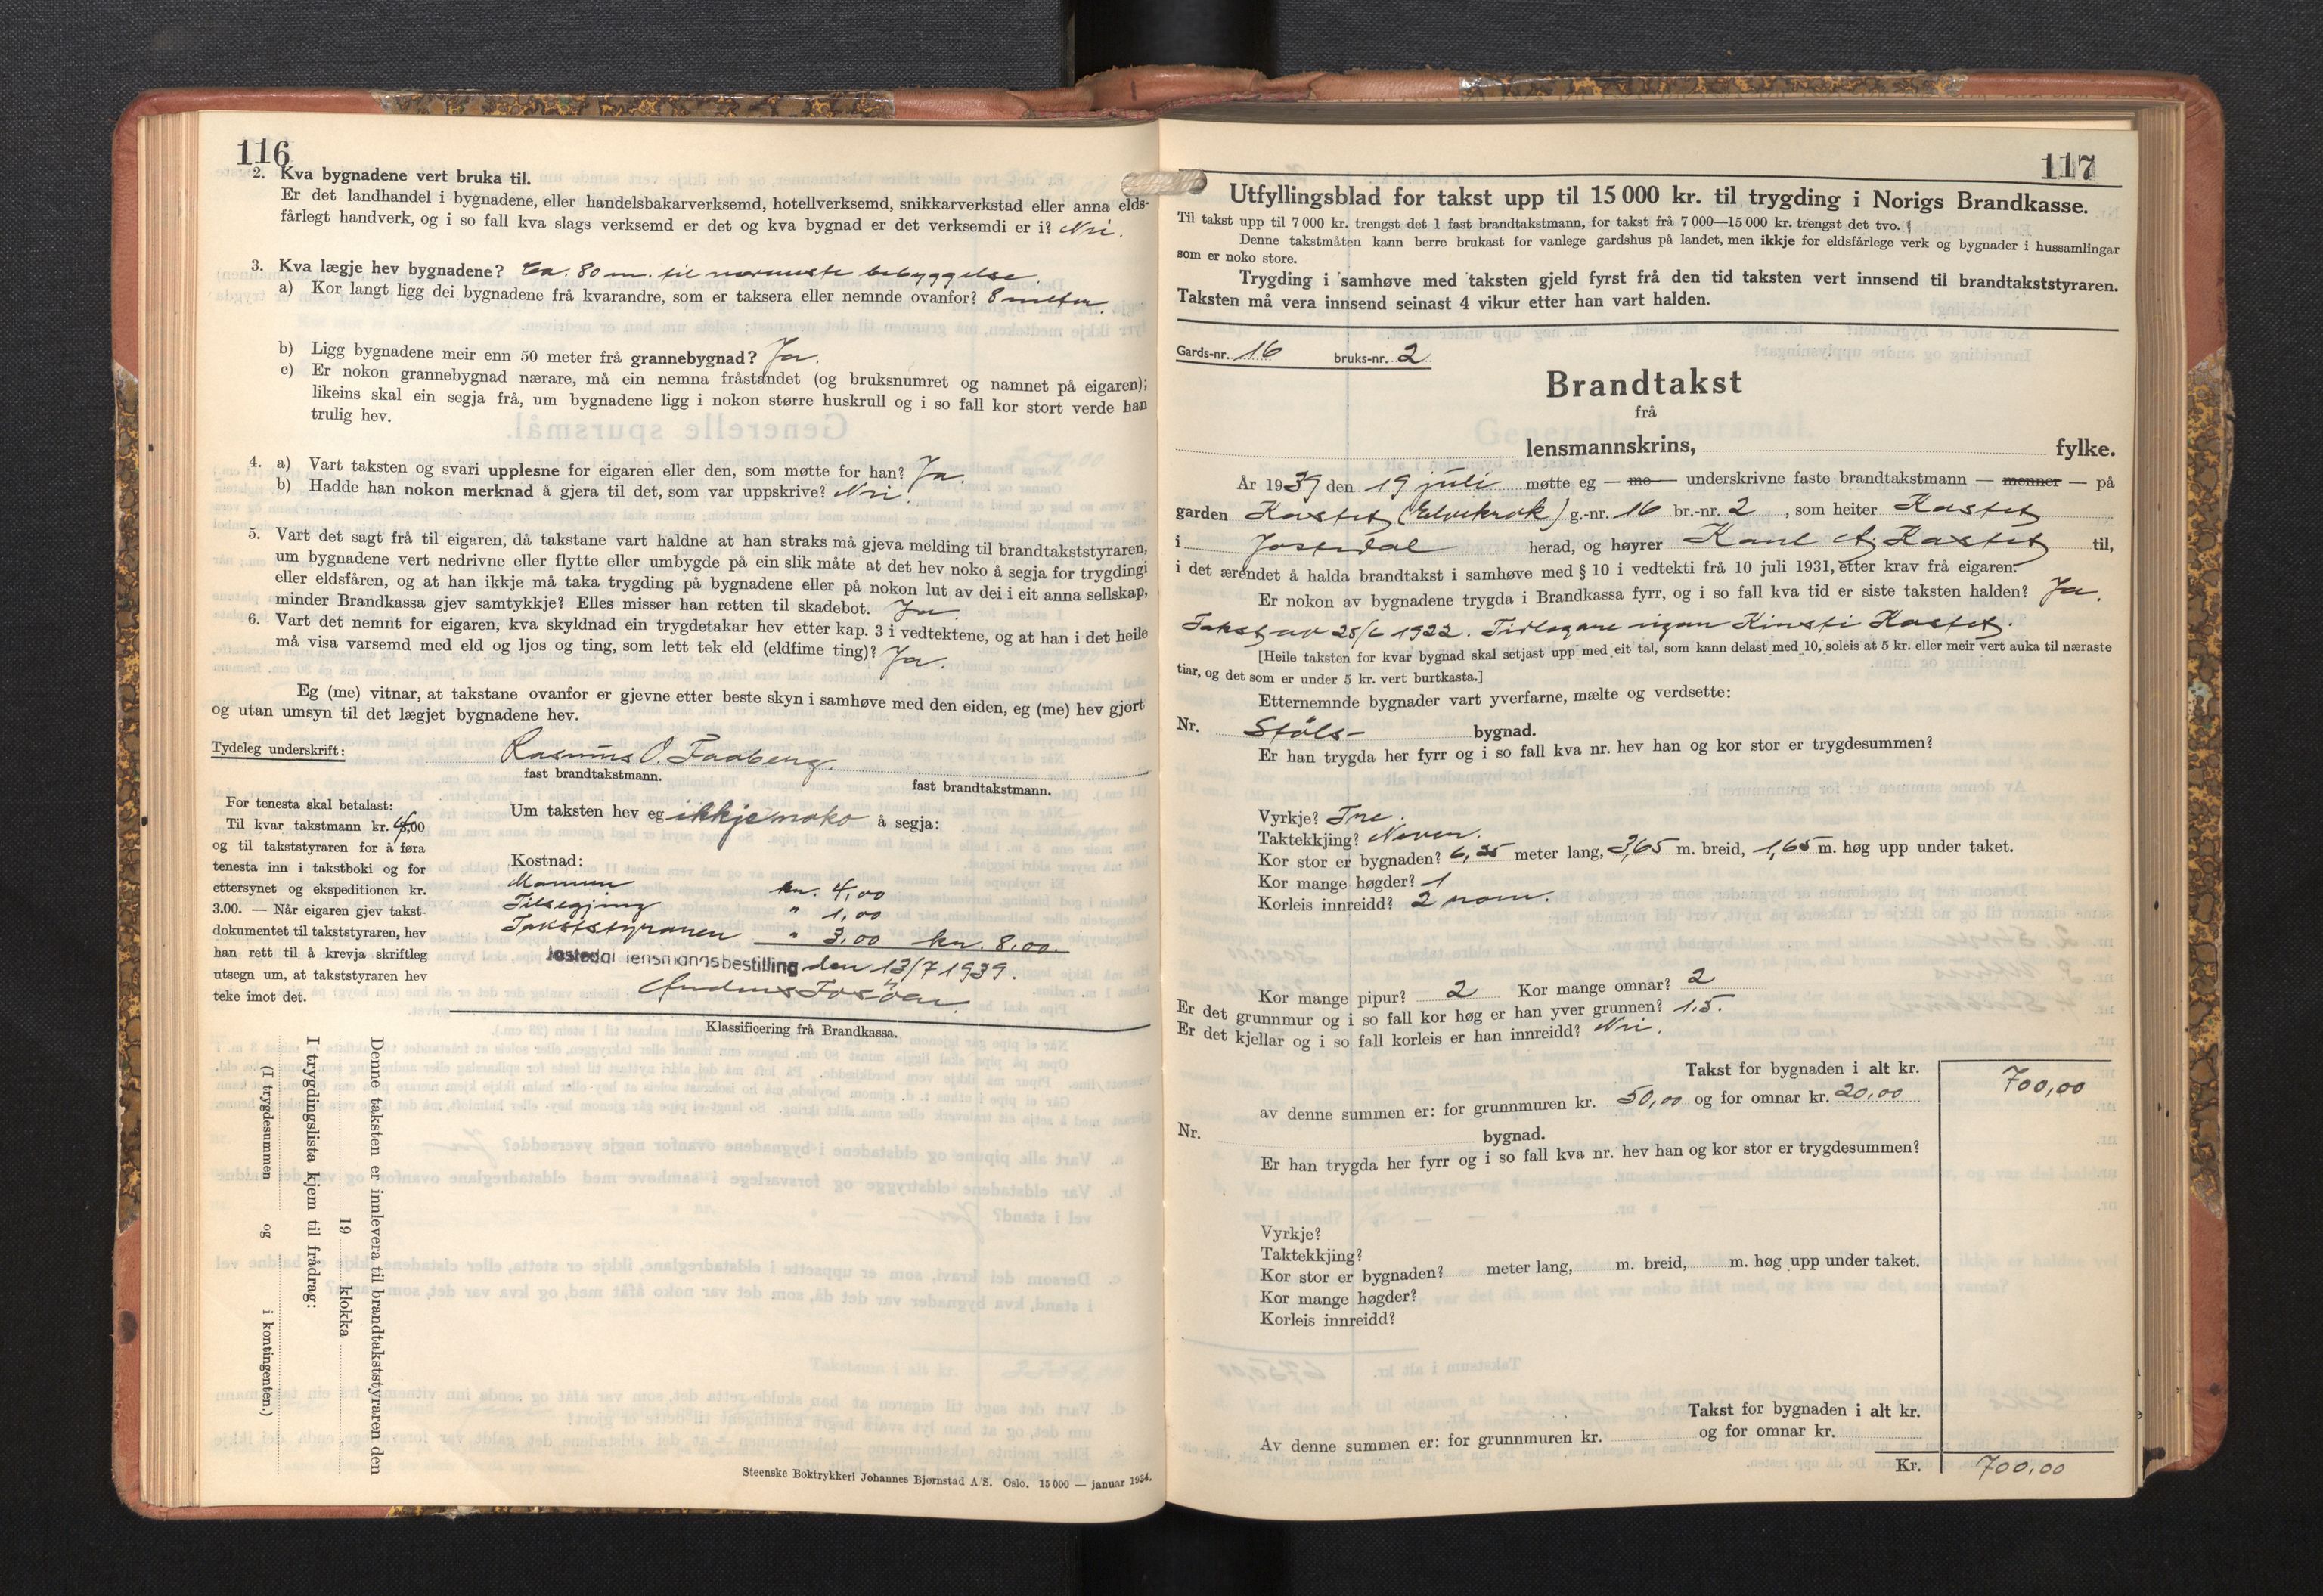 116
2. Kva bygnadene vert bruka til.
Er det landhandel i bygnadene, eller handelsbakarverksemd, hotellverksemd, snikkarverkstad eller anna elds-
fårlegt handverk, og i so fall kva slags verksemd er det og kva bygnad er det verksemdi er i? Nei.
3. Kva lægje hev bygnadene? Ca. 80 m. til nærmeste bebyggelse.
a) Kor langt ligg dei bygnadene frå kvarandre, som er taksera eller nemnde ovanfor? 8 meter.
b) Ligg bygnadene meir enn 50 meter frå grannebygnad? Ja.
c) Er nokon grannebygnad nærare, må ein nemna fråståndet (og bruksnumret og namnet på eigaren);
likeins skal ein segja frå, um bygnadene ligg i nokon større huskrull og i so fall kor stort verde han
trulig hev.
4. a) Vart taksten og svari upplesne for eigaren eller den, som møtte for han? Ja.
b) Hadde han nokon merknad å gjera til det, som var uppskrive? Nei.
5. Vart det sagt frå til eigaren, då takstane vart haldne at han straks må gjeva melding til brandtakststyraren,
um bygnadene vert nedrivne eller flytte eller umbygde på ein slik måte at det hev noko å segja for trygdingi
eller eldsfåren, og at han ikkje må taka trygding på bygnadene eller på nokon lut av dei i eit anna sellskap,
minder Brandkassa gjev samtykkje? Elles misser han retten til skadebot. Ja.
6. Vart det nemnt for eigaren, kva skyldnad ein trygdetakar hev etter kap. 3 i vedtektene, og at han i det heile
må visa varsemd med eld og ljos og ting, som lett tek eld (eldfime ting)? Ja.
Eg (me) vitnar, at takstane ovanfor er gjevne etter beste skyn i samhøve med den eiden, eg (me) hev gjort
og utan umsyn til det lægjet bygnadene hev.
Tydeleg underskrift: Rasmus O. Faaberg.
fast brandtakstmann. fast brandtakstmann.
For tenesta skal betalast:
Til kvar takstmann kr. 4,00
og til takststyraren for å føra
tenesta inn i takstboki og for
ettersynet og ekspeditionen kr.
3.00. — Når eigaren gjev takst-
dokumentet til takststyraren, hev
han rett til å krevja skriftleg
utsegn um, at takststyraren hev
teke imot det.
Um taksten hev eg ikkje noko å segja:
Kostnad:
Mannen kr. 4,00
Tilsegjing " 1,00
Takststyraren " 3,00 kr. 8,00.
Jostedal lensmannsbestilling den 13/7 1939.
Klassificering frå Brandkassa.
Denne taksten er innlevera til brandtakststyraren den
19 klokka
I trygdingslista kjem til frådrag:
(I trygdesummen og i kontingenten.)
Steenske Boktrykkeri Johannes Bjørnstad A/S. Oslo. 15 000 — januar 1934.
117
Utfyllingsblad for takst upp til 15 000 kr. til trygding i Norigs Brandkasse.
Til takst upp til 7 000 kr. trengst det 1 fast brandtakstmann, for takst frå 7 000—15 000 kr. trengst det tvo.
Denne takstmåten kann berre brukast for vanlege gardshus på landet, men ikkje for eldsfårlege verk og bygnader i hussamlingar
som er noko store.
Trygding i samhøve med taksten gjeld fyrst frå den tid taksten vert innsend til brandtakststyraren.
Taksten må vera innsend seinast 4 vikur etter han vart halden.
Gards-nr. 16 bruks-nr. 2.
Brandtakst
frå
lensmannskrins, fylke.
År 1939 den 19 juli møtte eg — me — underskrivne faste brandtakstmann — menner — på
garden Kastet (Elvekrok) g.-nr. 16 br.-nr. 2, som heiter Kastet
i Jostedal herad, og høyrer Karl A. Kastet til,
i det ærendet å halda brandtakst i samhøve med § 10 i vedtekti frå 10 juli 1931, etter krav frå eigaren.
Er nokon av bygnadene trygda i Brandkassa fyrr, og i so fall kva tid er siste taksten halden? Ja.
Takst av 28/6 1922. Tidlegare eigar Kirsti Kastet.
[Heile taksten for kvar bygnad skal setjast upp med eit tal, som kann delast med 10, soleis at 5 kr. eller meir vert auka til næraste
tiar, og det som er under 5 kr. vert burtkasta.]
Etternemnde bygnader vart yverfarne, mælte og verdsette:
Nr. Støls- bygnad.
Er han trygda her fyrr og i so fall kva nr. hev han og kor stor er trygdesummen?
Vyrkje? Tre.
Taktekkjing? Never.
Kor stor er bygnaden? 6,35 meter lang, 3,65 m. breid, 1,65 m. høg upp under taket.
Kor mange høgder? 1
Korleis innreidd? 2 rom.
Kor mange pipur? 2 Kor mange omnar? 2
Er det grunnmur og i so fall kor høg er han yver grunnen? 1,5.
Er det kjellar og i so fall korleis er han innreidd? Nei.
Takst for bygnaden i alt kr. 700,00
av denne summen er: for grunnmuren kr. 50,00 og for omnar kr. 20,00
Nr. bygnad.
Er han trygda her fyrr og i so fall kva nr. hev han og kor stor er trygdesummen?
Vyrkje?
Taktekkjing?
Kor stor er bygnaden? meter lang, m. breid, m. høg upp under taket.
Kor mange høgder?
Korleis innreidd?
Takst for bygnaden i alt kr.
Av denne summen er: for grunnmuren kr. og for omnar kr.
Kr. 700,00